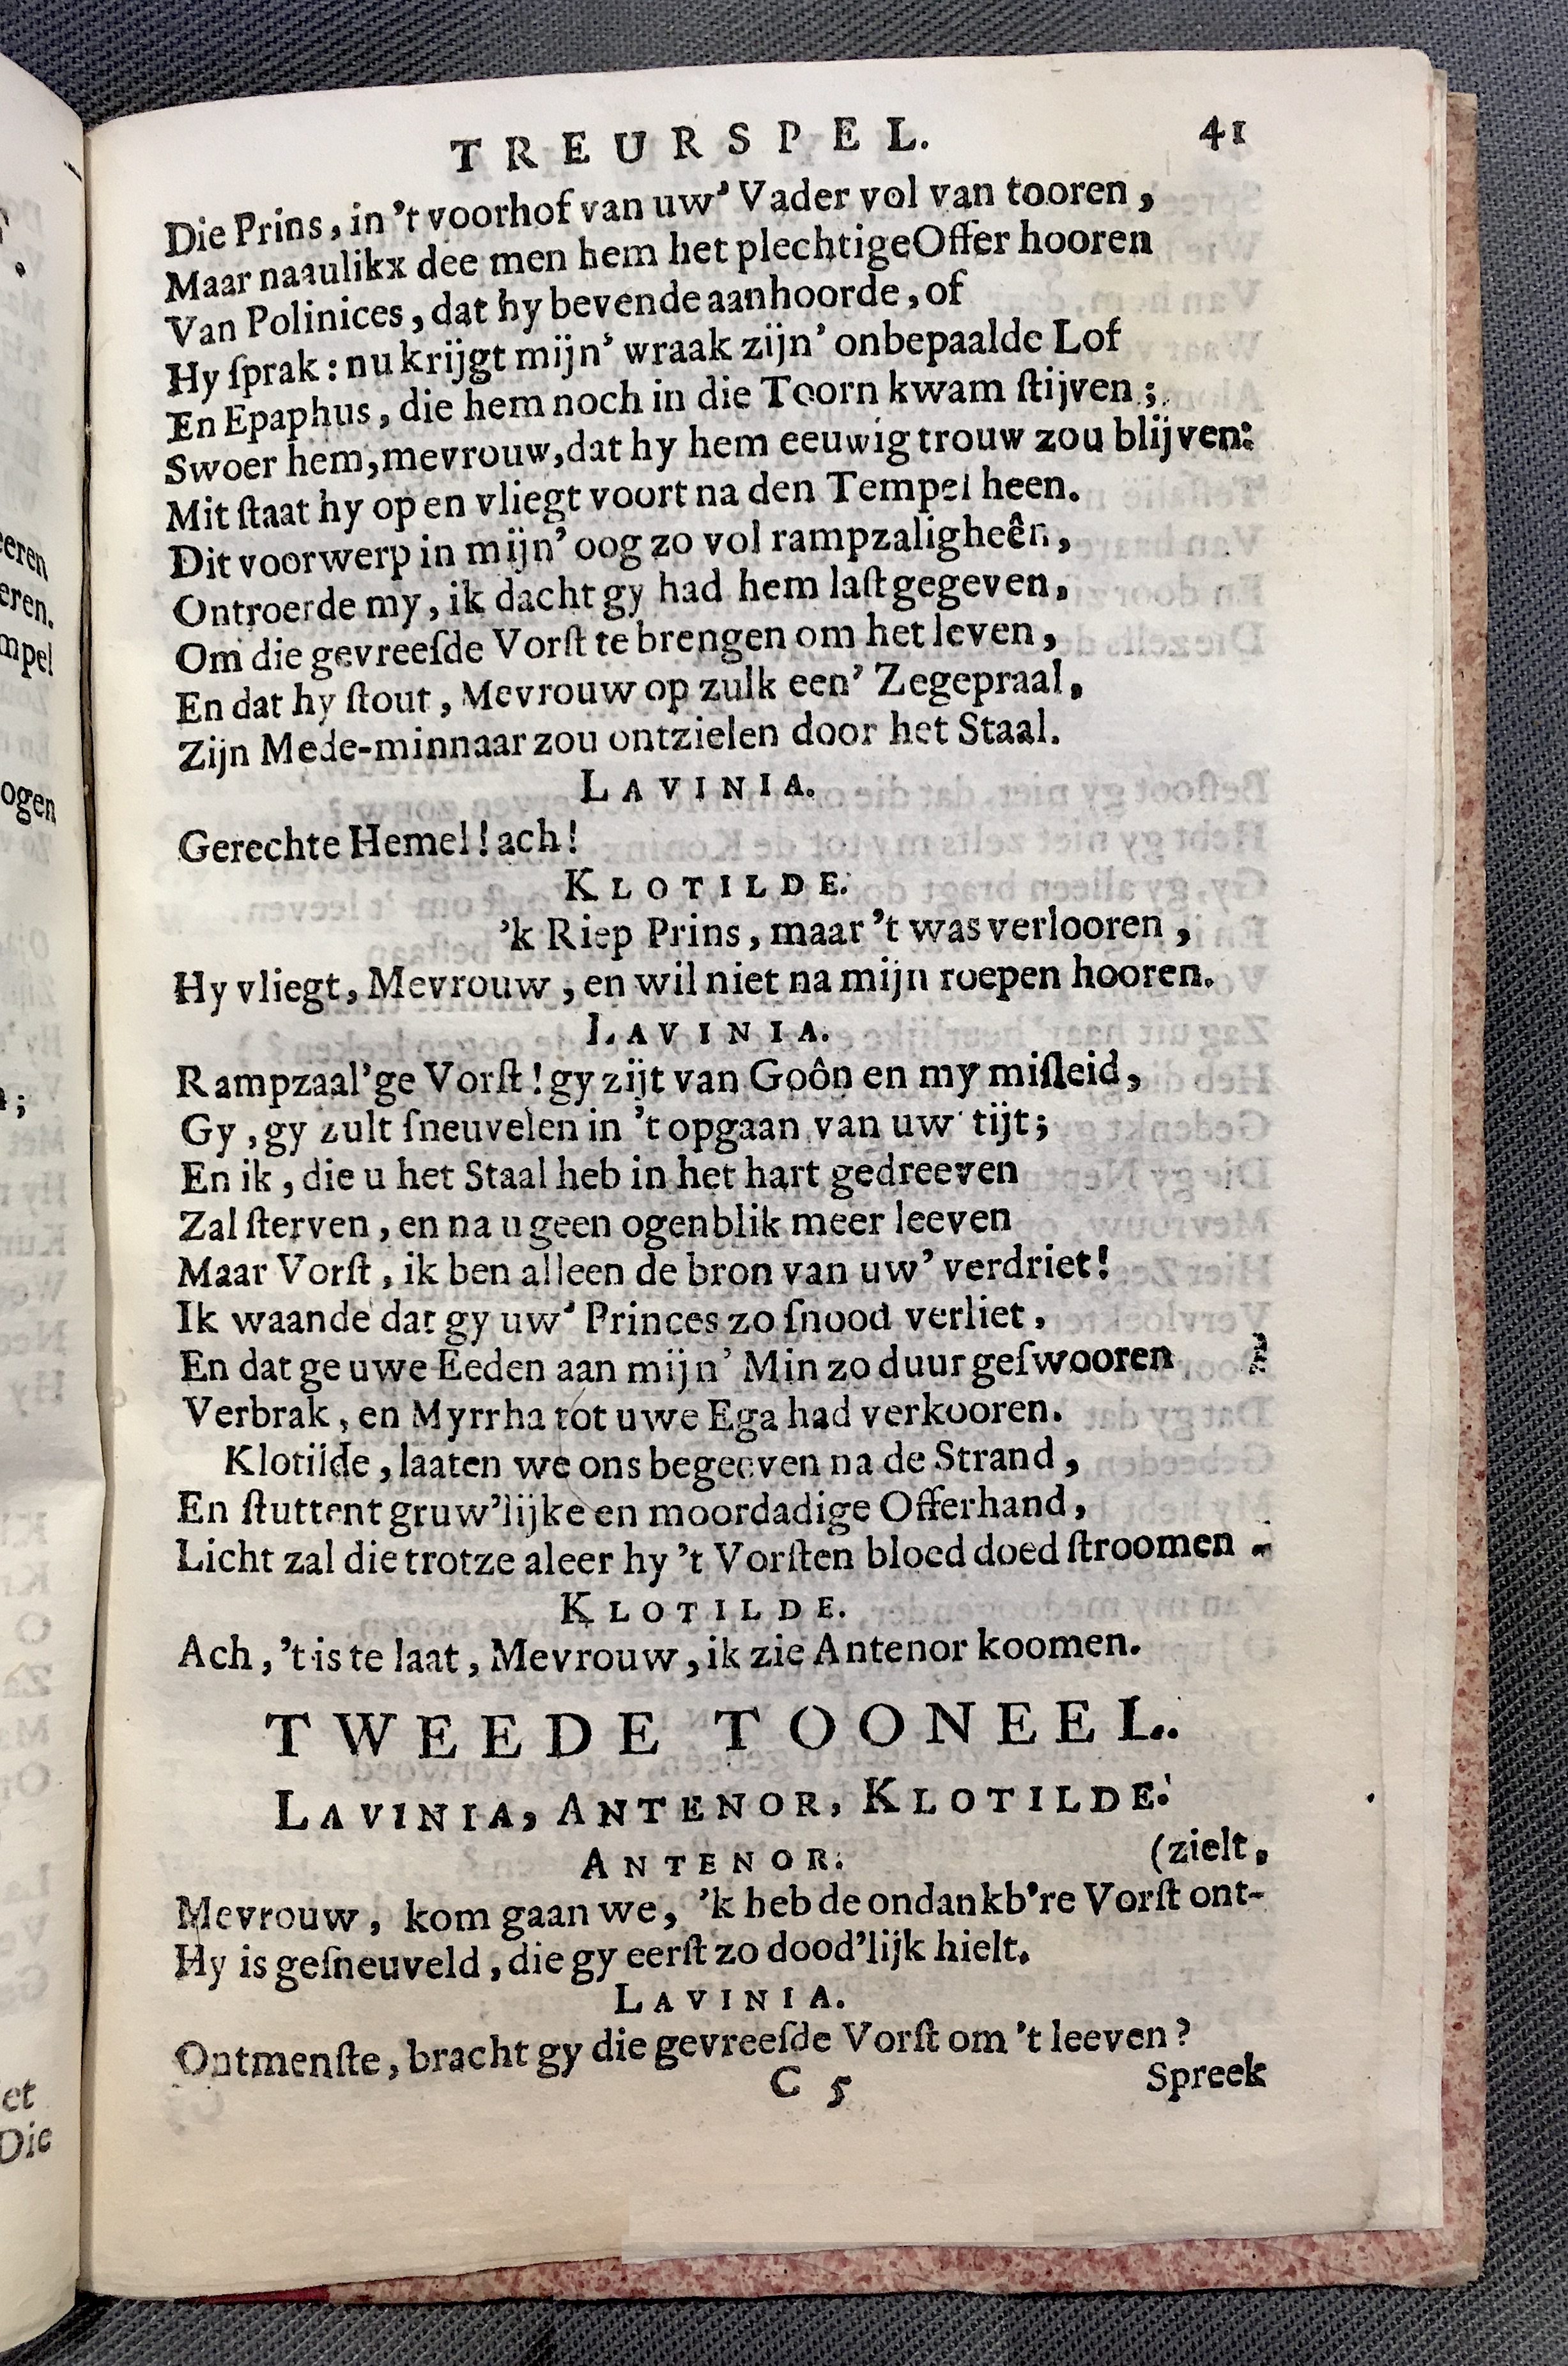 TREURSPEL. 41
Die Prins, in 't voorhof van uw' Vader vol van tooren,
Maar naaulikx dee men hem het plechtige Offer hooren
Van Polinices, dat hy bevende aanhoorde, of
Hy ſprak: nu krijgt mijn' wraak zijn' onbepaalde Lof
En Epaphus, die hem noch in die Toorn kwam ſtijven;
Swoer hem, mevrouw, dat hy hem eeuwig trouw zou blijven:
Mit ſtaat hy op en vliegt voort na den Tempel heen.
Dit voorwerp in mijn' oog zo vol rampzaligheên,
Ontroerde my, ik dacht gy had hem laſt gegeven,
Om die gevreeſde Vorſt te brengen om het leven,
En dat hy ſtout, Mevrouw op zulk een' Zegepraal,
Zijn Mede-minnaar zou ontzielen door het Staal.
LAVINIA.
Gerechte Hemel! ach!
KLOTILDE.
'k Riep Prins, maar 't was verlooren,
Hy vliegt, Mevrouw, en wil niet na mijn roepen hooren.
LAVINIA.
Rampzaal'ge Vorſt! gy zijt van Goôn en my miſleid,
Gy, gy zult ſneuvelen in 't opgaan van uw' tijt;
En ik, die u het Staal heb in het hart gedreeven
Zal ſterven, en na u geen ogenblik meer leeven
Maar Vorſt, ik ben alleen de bron van uw' verdriet!
Ik waande dat gy uw' Princes zo ſnood verliet,
En dat ge uwe Eeden aan mijn' Min zo duur geſwooren
Verbrak, en Myrrha tot uwe Ega had verkooren.
Klotilde, laaten we ons begeeven na de Strand,
En ſtuttent gruw'lijke en moordadige Offerhand,
Licht zal die trotze aleer hy 't Vorſten bloed doed ſtroomen
KLOTILDE.
Ach, 't is te laat, Mevrouw, ik zie Antenor koomen.
TWEEDE TOONEEL.
LAVINIA, ANTENOR, KLOTILDE.
ANTENOR. (zielt,
Mevrouw, kom gaan we, 'k heb de ondankb're Vorſt ont-
Hy is geſneuveld, die gy eerſt zo dood'lijk hielt.
LAVINIA.
Ontmenſte, bracht gy die gevreeſde Vorſt om 't leeven?
C 5 Spreek